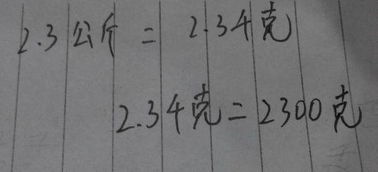 2.3公斤 = 2.34克
2.34克=2300克